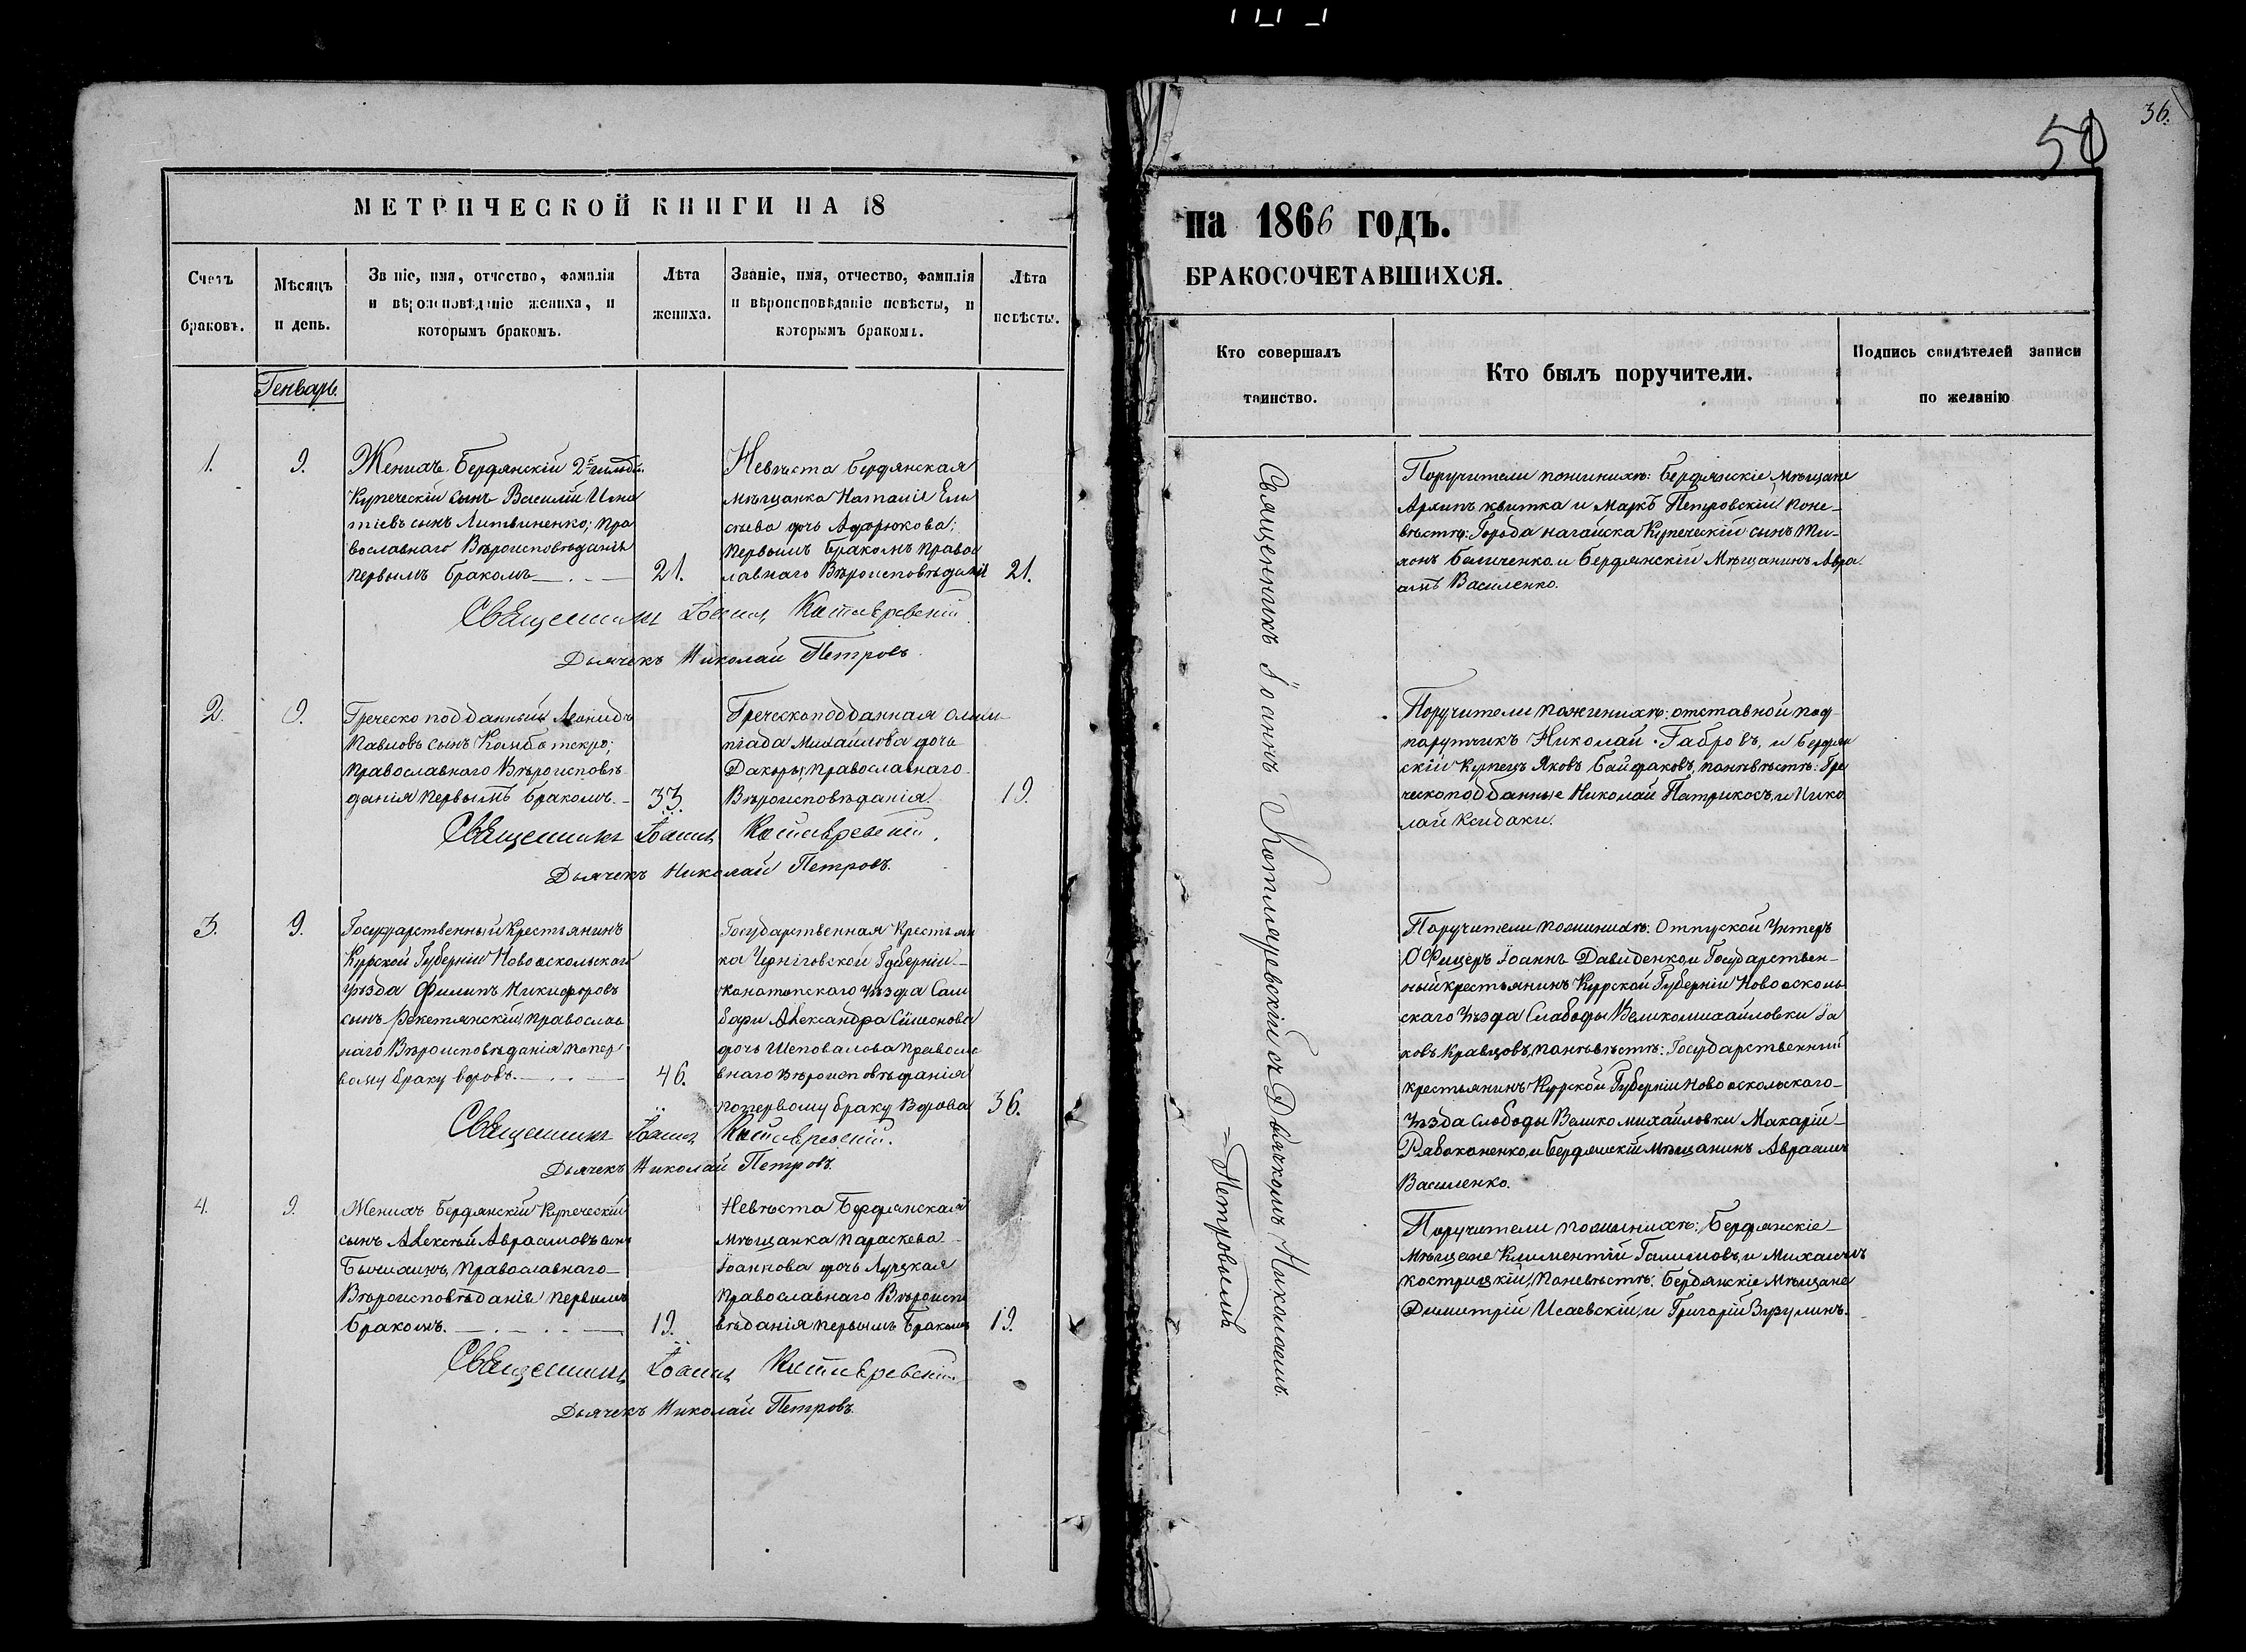 МЕТРИЧЕСКОЙ КНИГИ НА 18
Счетъ браковъ.
Мѣсяцъ и день.
Званіе, имя, отчество, фамилія
и вѣроисповѣданіе жениха, и
которымъ бракомъ.
Лѣта
жениха.
Званіе, имя, отчество, фамилія
и вѣроисповѣданіе невѣсты, и
которымъ бракомъ.
Лѣта
невѣсты.
Генварь.
1.
9.
Женихъ Бердянскій 2й гильдіи
Купеческій сынъ Василій Игна
тіевъ сынъ Литвиненко; пра
вославнаго Вѣроисповѣданія
первымъ бракомъ
21.
Невѣста Бердянская
мѣщанка Наталія Ели
сѣева дочь
первымъ бракомъ правос
лавнаго Вѣроисповѣданія
21.
Священникъ Іоаннъ Котляревскій
Дьячекъ Николай Петровъ.
2.
9.
Греческо подданный Леонидъ
Павловъ сынъ
Православнаго Вѣроисповѣ
данія первымъ бракомъ.
33.
Греческоподданная Олим
піада Михайлова дочь
Православнаго
Вѣроисповѣданія.
19.
Священникъ Іоаннъ Котляревскій.
Дьячекъ Николай Петровъ.
3.
9.
Государственный Крестьянинъ
Курской Губерніи Новооскольскаго
Уѣзда Филипъ Никифоровъ
сынъ Ракетянскій, православ
наго Вѣроисповѣданія по пер
вому браку вдовъ.
46.
Государственная Крестьян
ка Черниговской Губерніи
Конотопскаго Уѣзда
Александра Симонова
дочь Шеповалова правосла
внаго Вѣроисповѣданія
по первому браку Вдова
36.
Священникъ Іоаннъ Котляревскій.
Дьячекъ Николай Петровъ.
4.
9.
Женихъ Бердянскій Купеческій
сынъ Алексѣй Авраамовъ сынъ
Православнаго
Вѣроисповѣданія первымъ
бракомъ.
19.
Невѣста Бердянская
мѣщанка Параскева
Іоаннова дочь Луцкая
православнаго Вѣроиспо
вѣданія первымъ Бракомъ
19.
Священникъ Іоаннъ Котляревскій
Дьячекъ Николай Петровъ.
36.
50
на 1866 ГОДЪ.
БРАКОСОЧЕТАВШИХСЯ.
Кто совершалъ
таинство.
Кто былъ поручители.
Подпись свидѣтелей записи
по желанію
Священникъ Іоаннъ Котляревскій съ Дьячкомъ Николаемъ
Петровымъ
Поручители по женихѣ: Бердянскіе Мѣщане
Архипъ Квитка и Маркъ Петровскій по не-
вѣстѣ: Города Нагайска Купеческій сынъ Ти-
хонъ Беличенко и Бердянскій Мѣщанинъ Авра
амъ Василенко.
Поручители по женихѣ: отставной под-
порутчикъ Николай Габровъ, и Бердян
скій Купецъ Яковъ Байдаковъ, по невѣстѣ: Гре
ческоподданные Николай Патрикосъ, и Нико
лай Ксидаки.
Поручители по женихѣ: Отпуской Унтеръ
Офицеръ Іоаннъ Давиденко и Государствен-
ный крестьянинъ Курской Губерніи Новоосколь
скаго Уѣзда Слободы Великомихайловки Іа
ковъ Кравцовъ, по невѣстѣ: Государственный
крестьянинъ Курской Губерніи Новооскольскаго
Уѣзда Слободы Великомихайловки Макарій
Рабоконенко, и Бердянскій мѣщанинъ Авраамъ
Василенко.
Поручители по женихѣ: Бердянскіе
Мѣщане Климентій Галимовъ, и Михаилъ
Кострицкій, По невѣстѣ: Бердянскіе Мѣщане
Димитрій Исаевскій, и Григорій